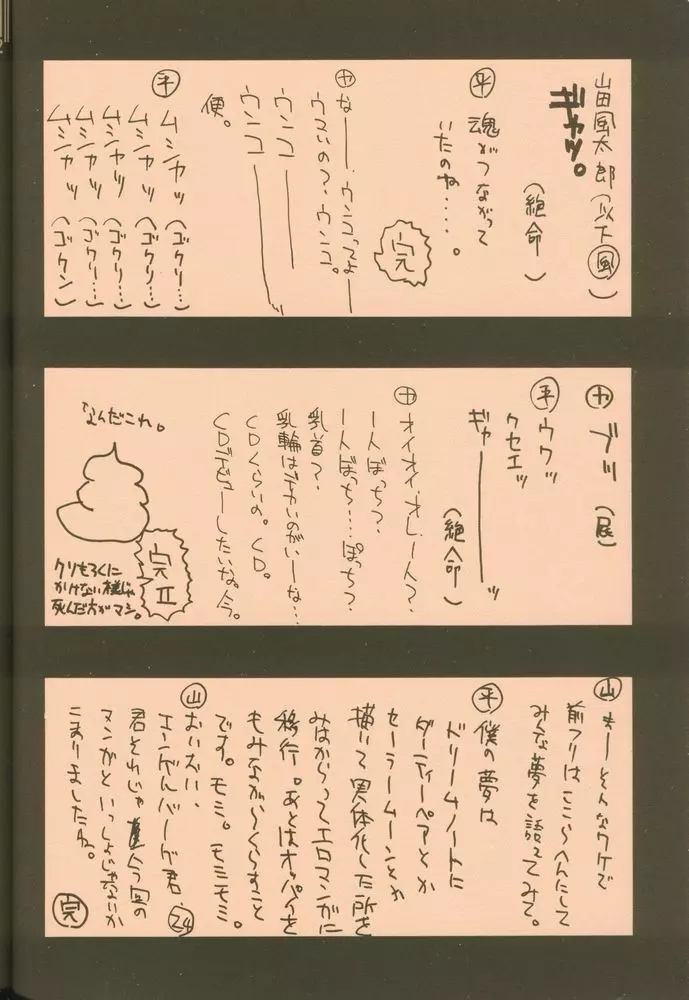 山田風太郎（以下㊊風）
ギャッ。
（絶命）
㊄平 魂がつながって
いたのね・・・・。
完
ヤ なー、ウンコってよー
ウマいの？、ウンコ。
ウンコ――
ウンコ――ッ
便。
平 ムシャッ（ゴクリ…）
ムシャッ（ゴクリ…）
ムシャッ（ゴクリ…）
ムシャッ（ゴクリ…）
ムシャッ（ゴクン）
カ ブッ（屁）
平 ウウッ
クセエッ
ギャーーッ
（絶命）
カ オイオイ、オレ一人？、
一人ぼっち？、
一人ぼっち…ぽっち？、
乳首？、
乳輪はデカいのがいーな…
CDくらいの。CD。
CDデビューしたいな。今。
なんだこれ。
完Ⅱ
クリもろくに
かけない様じゃ
死んだ方がマシ。
山 まーそんなワケで
前フリはここらへんにして
みんな夢を語ってみて。
平 僕の夢は
ドリームノートに
ダーティーペアとか
セーラームーンとか
描いて実体化した所を
みはからってエロマンガに
移行。あとはオッパイを
もみながらくらすこと
です。モミ。モミモミ。
山 おいおい、
エンゲルバーグ君 24
君それじゃ今回の
マンガといっしょじゃないか
こまりましたね。
完